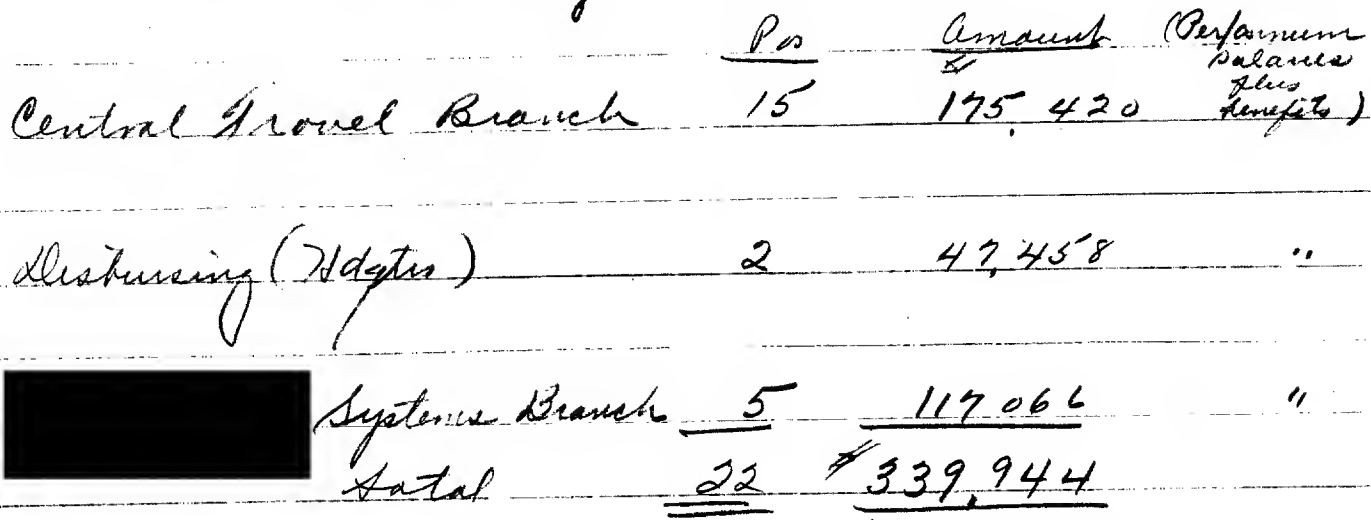 Pos Amount (Per/annum
$ salaries
plus
Central Travel Branch 15 175,420 benefits)
Disbursing (Hdqtrs) 2 47,458 "
Systems Branch 5 117 066 "
Total 22 $339,944